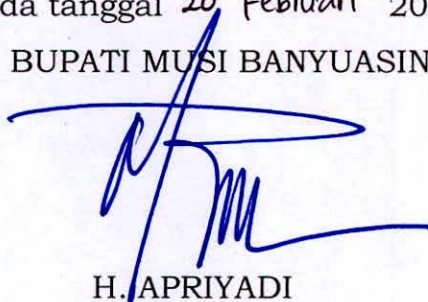 da tanggal 20 Februari 20
BUPATI MUSI BANYUASIN
H. APRIYADI